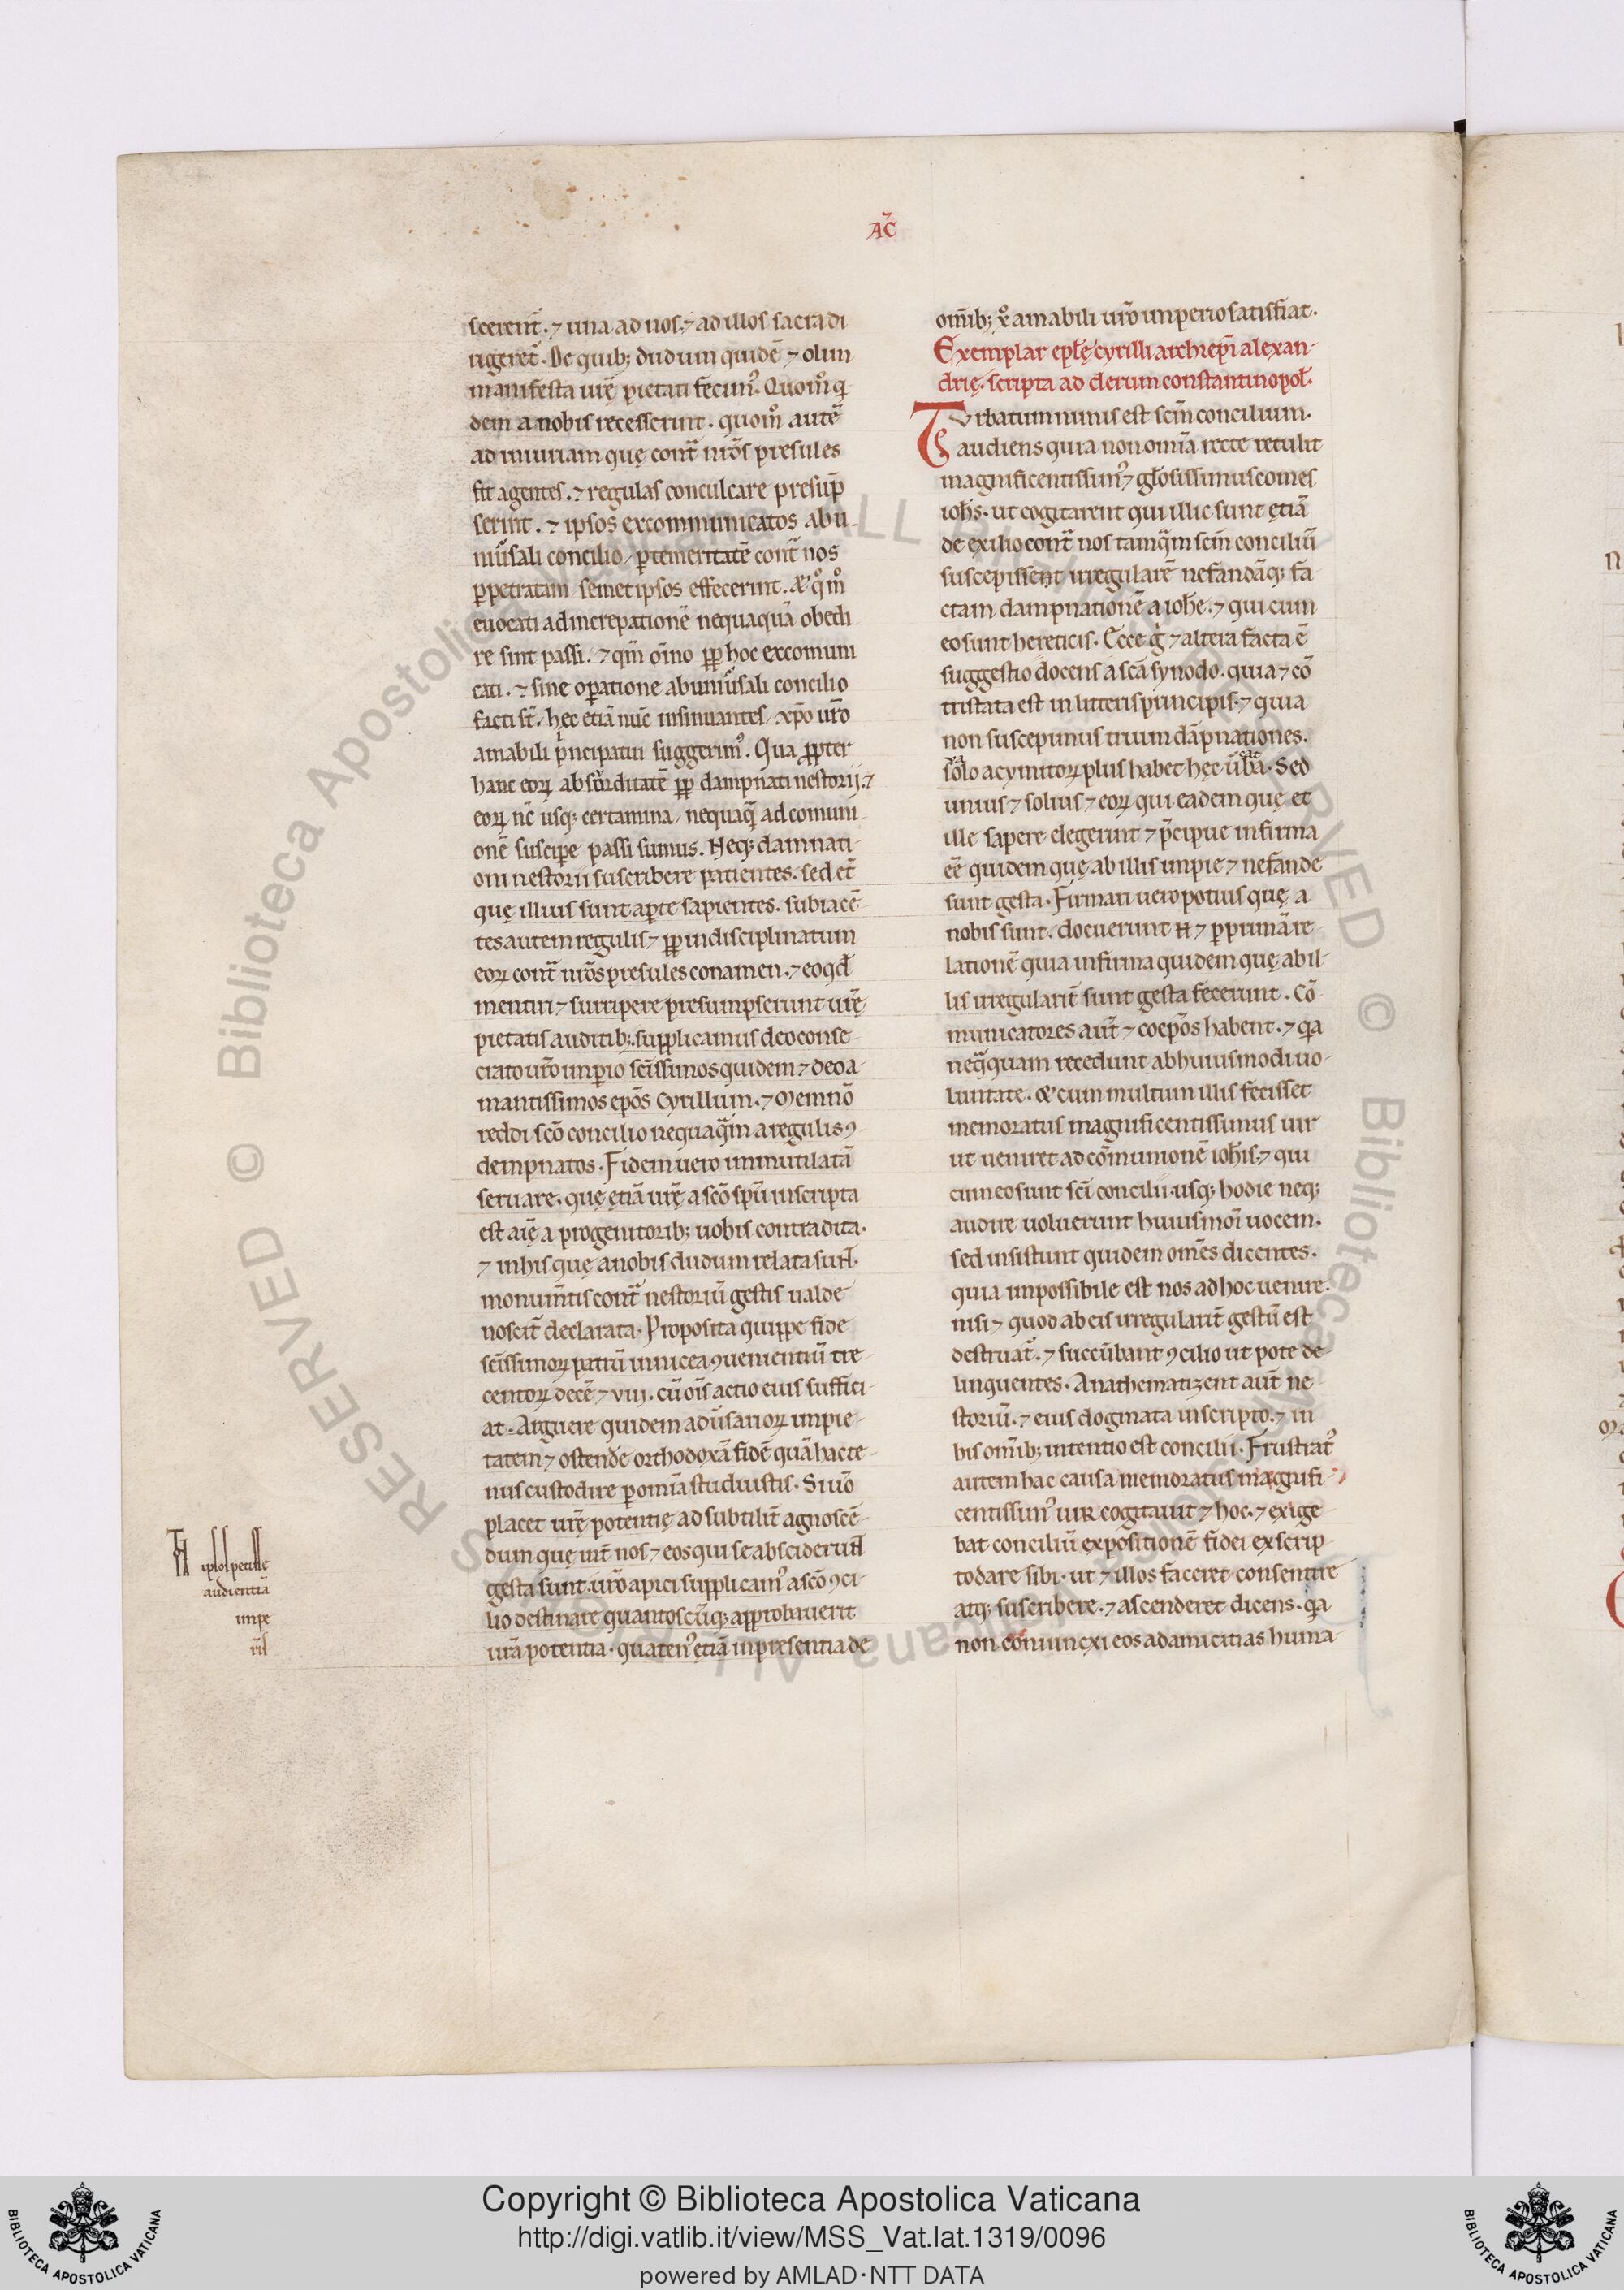 AC̃
sceren̄t. ⁊ una ad nos. ⁊ ad illos sacra di
rigeret̃. De quib; dudum quidē ⁊ olim
manifesta urę̃ pietati fecim᷒. Quom̊ q
dem a nobis recesserint. quom̊ autē
ad iniuriam quę cont̃ nr̃os presules
fit agentes. ⁊ regulas conculcare presup̄
serint. ⁊ ipsos excommunicatos abu
niũsali concilio / ꝑtemeritatē cont̃ nos
ꝑpetratam / semetipsos effecerint. & q̊m̊
euocati ad increpationē nequaquā obedi
re sint passi. ⁊ qm̄ om̄no ꝓp hoc excomuni
cati. ⁊ sine oꝑatione abuniũsali concilio
facti st̃. hęc etiā nūc insinuantes / xp̄o ur̃o
amabili pͥncipatui suggerim᷒. Qua ꝓpter
hanc eoꝝ absurditatē ꝓp dampnati nestorij. ⁊
eoꝝ nc̄ usq; certamina / nequaq̃ ad comuni
onē suscipe passi sumus. Neq; damnati
oni nestorii suscribere patientes. sed et̃
quę illius sunt aꝑte sapientes. subiacē
tes autem regulis ⁊ ꝓp indisciplinatum
eoꝝ cont̃ nr̃os presules conamen. ⁊ eo qd̃
mentiri ⁊ surripere presumpserunt urę̃
pietatis auditib;. supplicamus deo conse
crato ur̃o imꝑio sc̄issimos quidem ⁊ deo a
mantissimos ep̄os Cyrillum. ⁊ Memnō
reddi sc̄o concilio nequaq̃m a regulis ꝯ
dempnatos. Fidem uero inmutilatā
seruare. quę ętiā urę̃ a sc̄o sp̄u inscripta
est aię̄ a progenitorib; uobis contradita.
⁊ in his quę a nobis dudum relata sunt.
monum̃tis cont̃ nestoriū gestis ualde
noscit̃ declarata. Proposita quippe fide
sc̄issimoꝝ patrū in nicea ꝯuenientiū tre
centoꝝ decē ⁊ viij. cū om̄s actio eius suffici
at. Arguere quidem adũsarioꝝ impie
tatem ⁊ ostende orthodoxā fidē quā hacte
nus custodire ꝑ omīa studuistis. Si uō
placet urę̃ potentię ad subtilit̃ agnoscē
dum quę int̃ nos ⁊ eos qui se absciderunt
gesta sunt. ur̃o apici supplicam᷒ a sc̄o ꝯci
lio destinare quantoscūq; approbauerit
ur̃a potentia. quaten᷒ ętiā in presentia de
audientiā
om̄ib; x̊ amabili ur̃o imperio satisfiat.
Exemplar epl̃ę cyrilli archiep̄i alexan
drię. scripta ad clerum constantinopol̃.
Turbatum nimis est sc̄m concilium.
audiens quia non omīa recte retulit
magnificentissim᷒ ⁊ gl̃osissimus comes
ioh̃s. ut cogitarent qui illic sunt ętiā
de exilio cont̃ nos tamq̃m sc̄m conciliū
suscepissent irregularē nefandāq; fa
ctam dampnationē a ioh̃e. ⁊ qui cum
eo sunt hereticis. Ecce g̊ ⁊ altera facta ē
suggestio docens a sc̄a synodo. quia ⁊ cō
tristata est in litteris principis. ⁊ quia
non suscepimus trium dāpnationes.
solo acymitoꝝ plus habet hęc ũba. Sed
unius ⁊ solius ⁊ eoꝝ qui eadem quę et
ille sapere elegerunt ⁊ p̃cipue infirma
eē quidem quę ab illis impie ⁊ nefande
sunt gesta. Firmari uero potius quę a
nobis sunt. docuerunt H ⁊ ꝑ primā re
lationē quia infirma quidem quę abil
lis irregularit̃ sunt gesta fecerunt. Cō
municatores aut̃ ⁊ coep̄os habent. ⁊ qa
neq̃quam recedunt ab huiusmodi uo
luntate. & cum multum illis fecisset
memoratus magnificentissimus uir
ut ueniret ad cōmunionē ioh̃is. ⁊ qui
cum eo sunt sc̄i concilii. usq; hodie neq;
audire uoluerunt huiusmoi uocem.
sed insistunt quidem om̄s dicentes.
quia impossibile est nos ad hoc uenire.
nisi ⁊ quod ab eis irregularit̃ gestū est
destruat̃. ⁊ succūbant ꝯcilio ut pote de
linquentes. Anathematizent aut̃ ne
storiū. ⁊ eius dogmata in scripto. ⁊ in
his om̄ib; intentio est concilii. Frustrat᷒
autem hac causa memoratus magnifi
centissim᷒ uir cogitauit ⁊ hoc. ⁊ exige
bat conciliū expositionē fidei exscrip
to dare sibi. ut ⁊ illos faceret consentire
atq; suscribere. ⁊ ascenderet dicens. qa
non coniunxi eos ad amicitias huma
Copyright © Biblioteca Apostolica Vaticana
http://digi.vatlib.it/view/MSS_Vat.lat.1319/0096
powered by AMLAD·NTT DATA
BIBLIOTECA APOSTOLICA VATICANA
BIBLIOTECA APOSTOLICA VATICANA